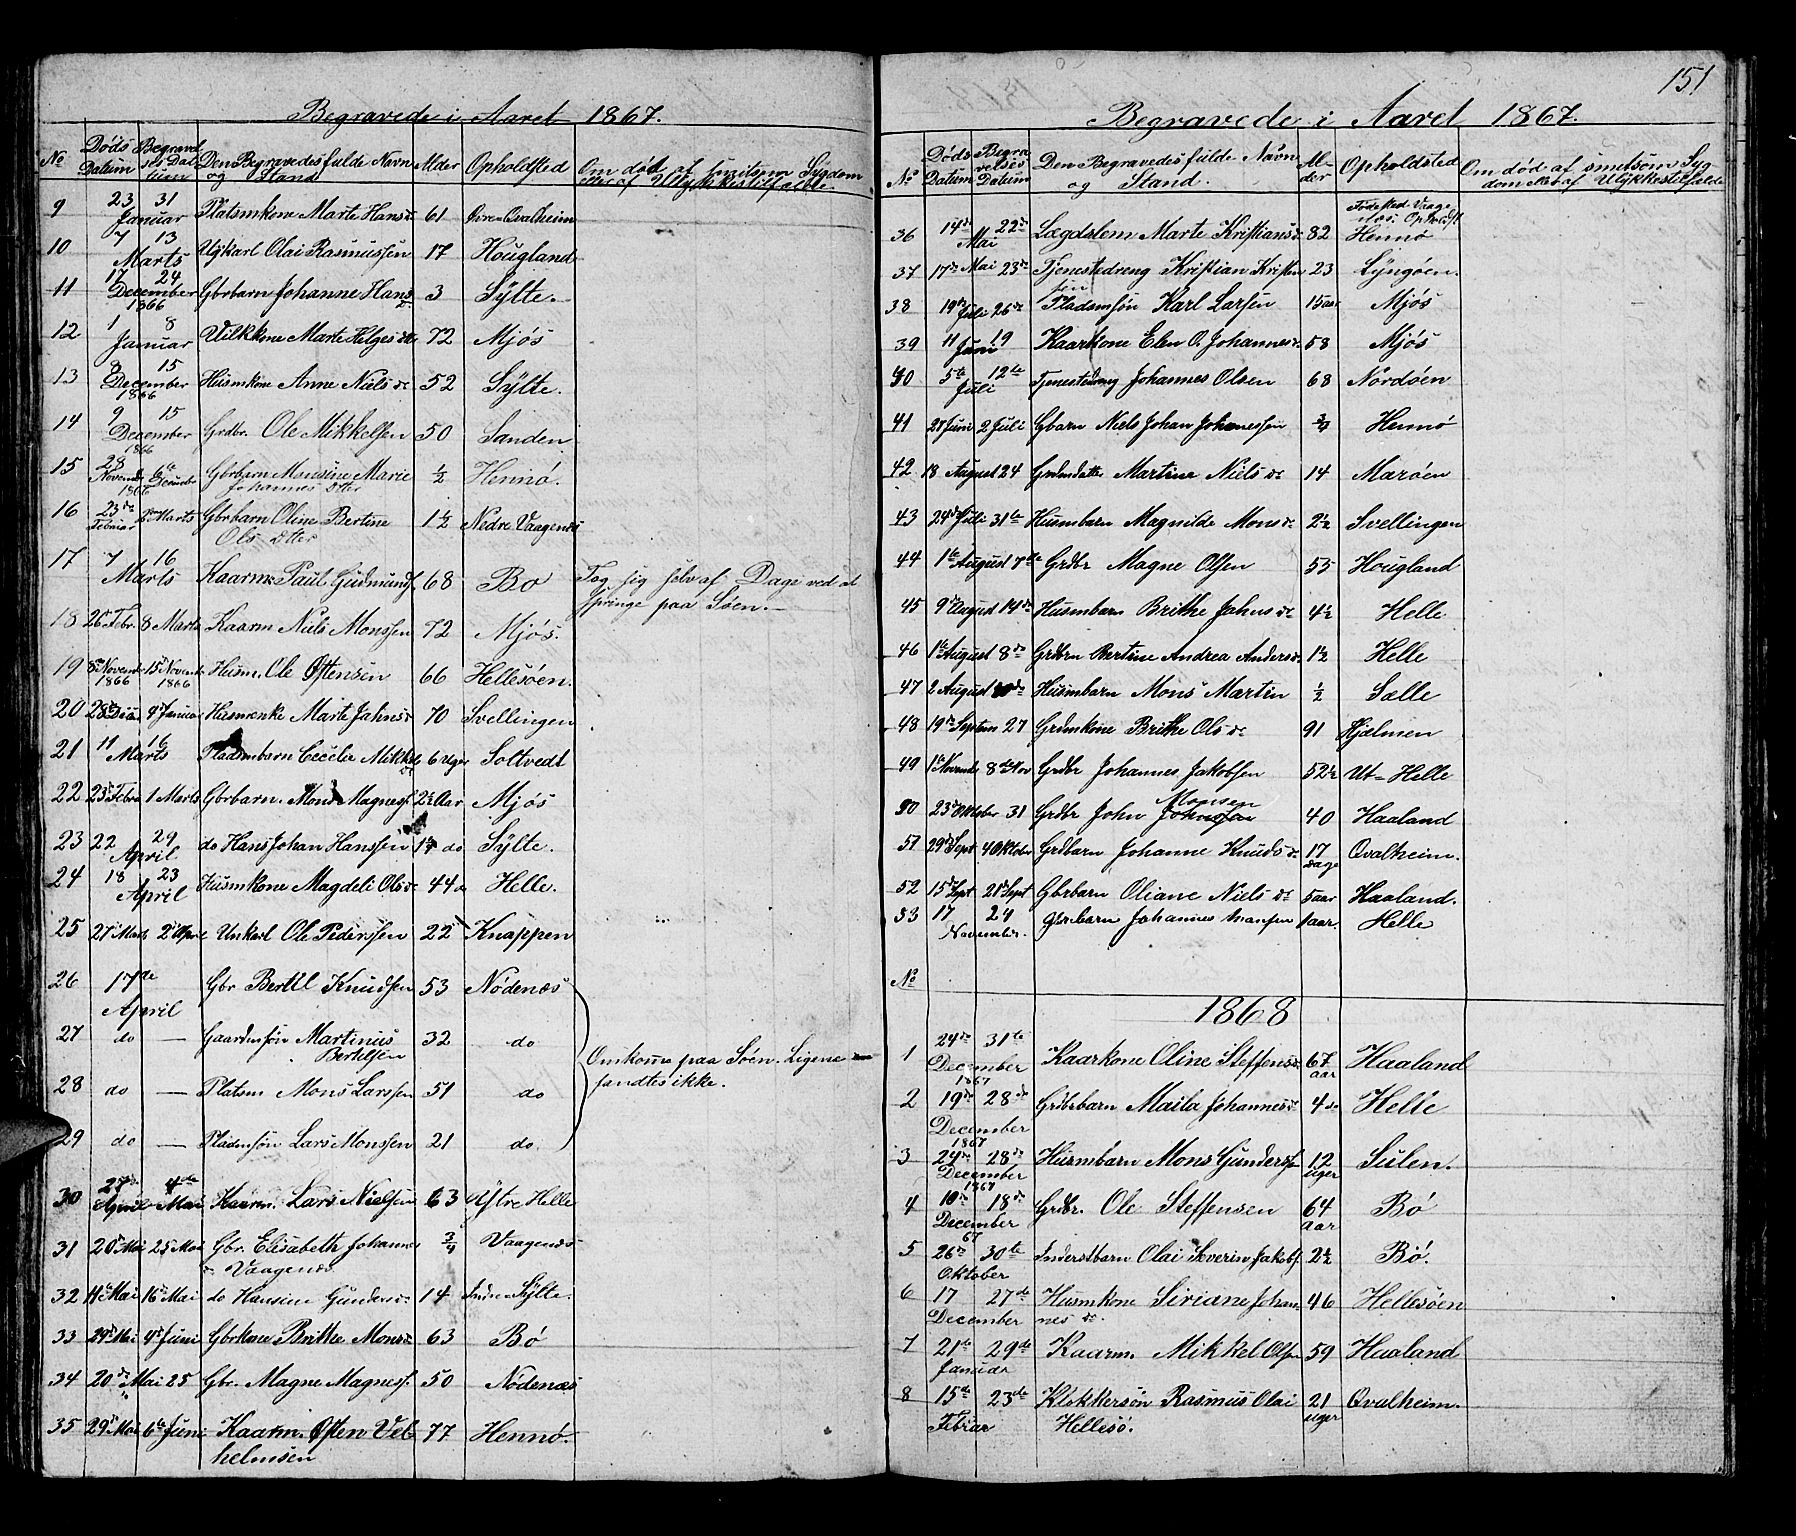 151
Begravede i Aaret 1867.
No Døds Datum Begravelses Datum Den Begravedes fulde Navn og Stand Alder Opholdsted Om død af smitsom Sygdom eller af Ulykkestilfælde
9 23 Januar 31 Platsmkone Marte Hansd. 61 Øvre Qvalheim
10 7 Marts 13 Ugkarl Olai Rasmussen 17 Hougland
11 17 December 1866 24 Gbrbarn Johanne Hansd. 3 Sylte.
12 1 Januar 8 Vilkkone Marte Helges dr 72 Mjós
13 8 December 1866 15 Husmkone Anne Niels dr 52 Sylte.
14 9 December 1866 15 Grdbr. Ole Mikkelsen 50 Sanden
15 28 Novemb 1866 6te December Gbrbarn Monsine Marie Johannes Dtter ½ Hennó.
16 23de Februar 2 Marts Gbrbarn Oline Bertine Ols Dtter 1½ Nedre Vaagenes
17 7 Marts 16 Kaarm. Paul Gudmunds. 68 Bo Tog sig selv af Dage ved at springe paa Søen.
18 26 Febr. 8 Marts Kaarm Niels Monssen 72 Mjós.
19 8 Novemb 1866 15 Novemb 1866 Husm. Ole Ostensen 66 Hellesóen.
20 28 4 Januar Husmenke Marte Jahnsd 70 Svellingen
21 11 Marts 16 Pladsmbarn Cecilia Mikkelsdr 6 Uger Soltvedt
22 23 Febr 1 Marts Gbrbarn. Mons Magness. 2½ Aar Mjós
23 22 April 29 do Hans Johan Hanssen do Sylte.
24 18 April 23 Husmkone Magdeli Olsdr 44 Helle.
25 27 Marts 2 April Unkarl Ole Pederssen 22 Knappen
26 17de April Gbr Bertil Knudsen 53 Nódenæs
27 do — Gaardmsón Martinus Bertelsen 32 do
Omkom paa Søen. Ligene fandtes ikke.
28 do — Platsm Mons Larssen 51 do
29 do — Pladsmsón Lars Monssen 21 do.
30 27 April 4de Mai Kaarm. Lars Nielsen 63 Ystre Helle
31 20 Mai 25 Mai Gbr. Elisabeth Johannesdr Vaagenæs ¾ Vaagenæs
32 11 Mai 16 Mai do Hansine Gundersdr 14 Indre Sylte.
33 29 Mai 4 Juni Gbrkone Brithe Monsdr 63 Bó
34 20de Mai 25 Gbr. Magne Magness. 50 Nódenæs
35 29 Mai 6te Juni Kaarm. Osten Velhelmsen 77 Hennó.
Begravede i Aaret 1867.
No Døds Datum Begravelses Datum Den Begravedes fulde Navn og Stand. Alder Opholdsted Om død af smitsom Sygdom eller af Ulykkestilfælde
36 14de Mai 22de Lægdslem Marte Kristiansdr 82 Fødested Vaagenæs. Opholdst. Hennó
37 17de Mai 23de Tjenestedreng Kristian Kristensen 23 Lyngóen.
38 19de Juli 26de Pladsmsón Karl Larsen Mjós
39 11 Juni 19 Kaarkone Elen O. Johannesdr 58 Mjós
40 5te Juli 12te Tjenestedreng Johannes Olsen 68 Nordóen
41 28 Juni 2 Juli Gbarn Niels Johan Johanessen ¾ Hennó
42 18 August 24 Grdmdatter Martine Niels dr 14 Maróen
43 24de Juli 31te Husmbarn Magnilde Monsdr 2½ Svellingen
44 1te August 7de Grdbr Magne Olsen 55 Hougland
45 9de August 14de Husmbarn Brithe Jahns dr 4½ Helle
46 1te August 8de Grdbrn Bertine Andrea Andersdr 1½ Helle
47 2 August Husmbarn Mons Martin ½ Sælle
48 19de Septem 27 Grdmkone Brithe Ols dr 91 Hjelmen
49 1te Novemb 8de Nov Grdbr Johannes Jakobsen 52½ Ut-Helle
50 23de Oktober 31 Grdbr John Monsen 40 Haaland
51 29de Sept 4 Oktober Grdbarn Johanne Knuds dr 17 Dage Qvalheim.
52 15de Sept 21 Sept Gbrbarn Oliane Niels dr 5 aar Haaland.
53 17 November. 24 Gbrebarn Johannes Mansen 1 aar. Helle
No
1868
1 24de December 1867 31te Kaarkone Oline Steffensdr 67 aar Haaland
2 19de December 1867 28de Grdbrbarn Maila Johannesdr 4 do Helle
3 24de December 1867 28de Husmbarn Mons Gunders. 12 uger Sulen.
4 10de December 67 18de Grdbr. Ole Steffensen 64 aar Bó
5 26de Oktober 30te Inderstbarn Olai Severin Jakobs. 2½ Bó.
6 17 December 27de Husmkone Siriane Johannes dr. 46 Hellesóen
7 21te Januar 29de Kaarm. Mikkel Olsen 59 Haaland
8 15de Febriar 23de Klokkersón Rasmus Olai Hellesó. 21 uger Qvalheim.